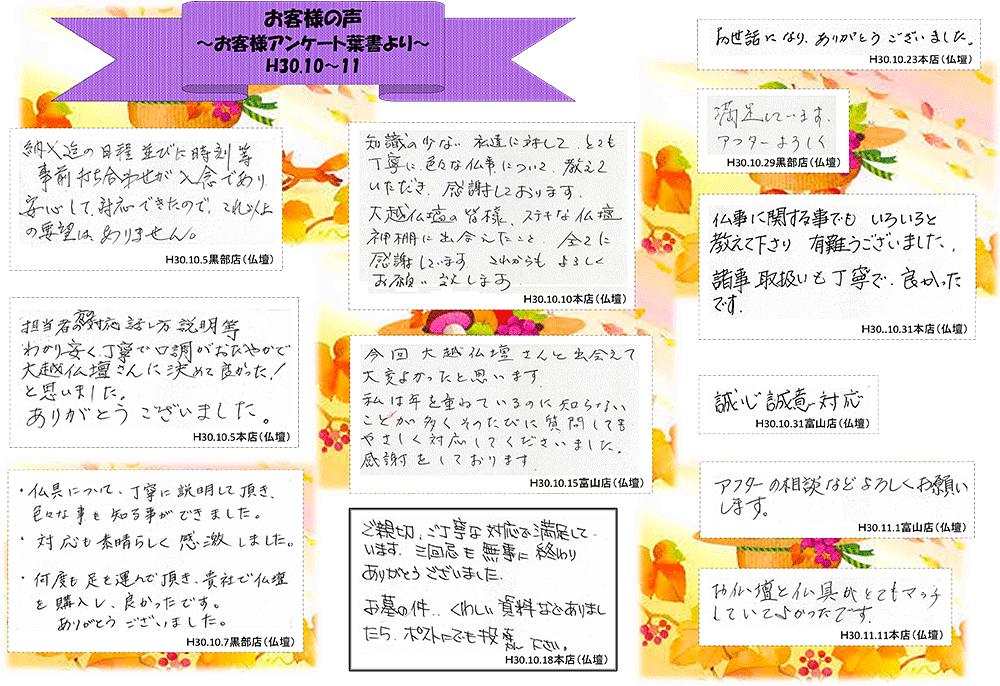 お客様の声
～お客様アンケート葉書より～
H30.10～11
納入迄の日程並びに時刻等
事前打ち合わせが入念であり
安心して対応できたので、これ以上
の要望は、ありません。
H30.10.5黒部店（仏壇）
担当者の対応 話し方 説明等
わかり安く、丁寧で口調がおだやかで
大越仏壇さんに決めて良かった!
と思いました。
ありがとうございました。
H30.10.5本店（仏壇）
・仏具について、丁寧に説明して頂き、
色々な事を知る事ができました。
・対応も素晴らしく感激しました。
・何度も足を運んで頂き、貴社で仏壇
を購入し、良かったです。
ありがとうございました。
H30.10.7黒部店（仏壇）
知識の少ない私達に対して、とても
丁寧に色々な仏事について、教えて
いただき、感謝しております。
大越仏壇の皆様、ステキな仏壇
神棚に出会えたこと、全てに
感謝しています これからも よろしく
お願い致します
H30.10.10本店（仏壇）
今回大越仏壇さんと出会えて
大変よかったと思います.
私は年を重ねているのに知らない
ことが多くそのたびに質問しても
やさしく対応してくださいました。
感謝をしております.
H30.10.15富山店（仏壇）
ご親切、ご丁寧な対応で満足して
います. 三回忌も無事に終わり
ありがとうございました.
お墓の件.. くわしい資料などありまし
たら、ポストにでも投函 下さい。
H30.10.18本店（仏壇）
お世話になり、ありがとうございました。
H30.10.23本店（仏壇）
満足しています.
アフターよろしく
H30.10.29黒部店（仏壇）
仏事に関する事でも いろいろと
教えて下さり 有難うございました.
諸事取扱いも丁寧で、良かった
です.
H30..10.31本店（仏壇）
誠心誠意対応
H30.10.31富山店（仏壇）
アフターの相談などよろしくお願い
します。
H30.11.1富山店（仏壇）
お仏壇と仏具がとてもマッチ
していてよかったです.
H30.11.11本店（仏壇）